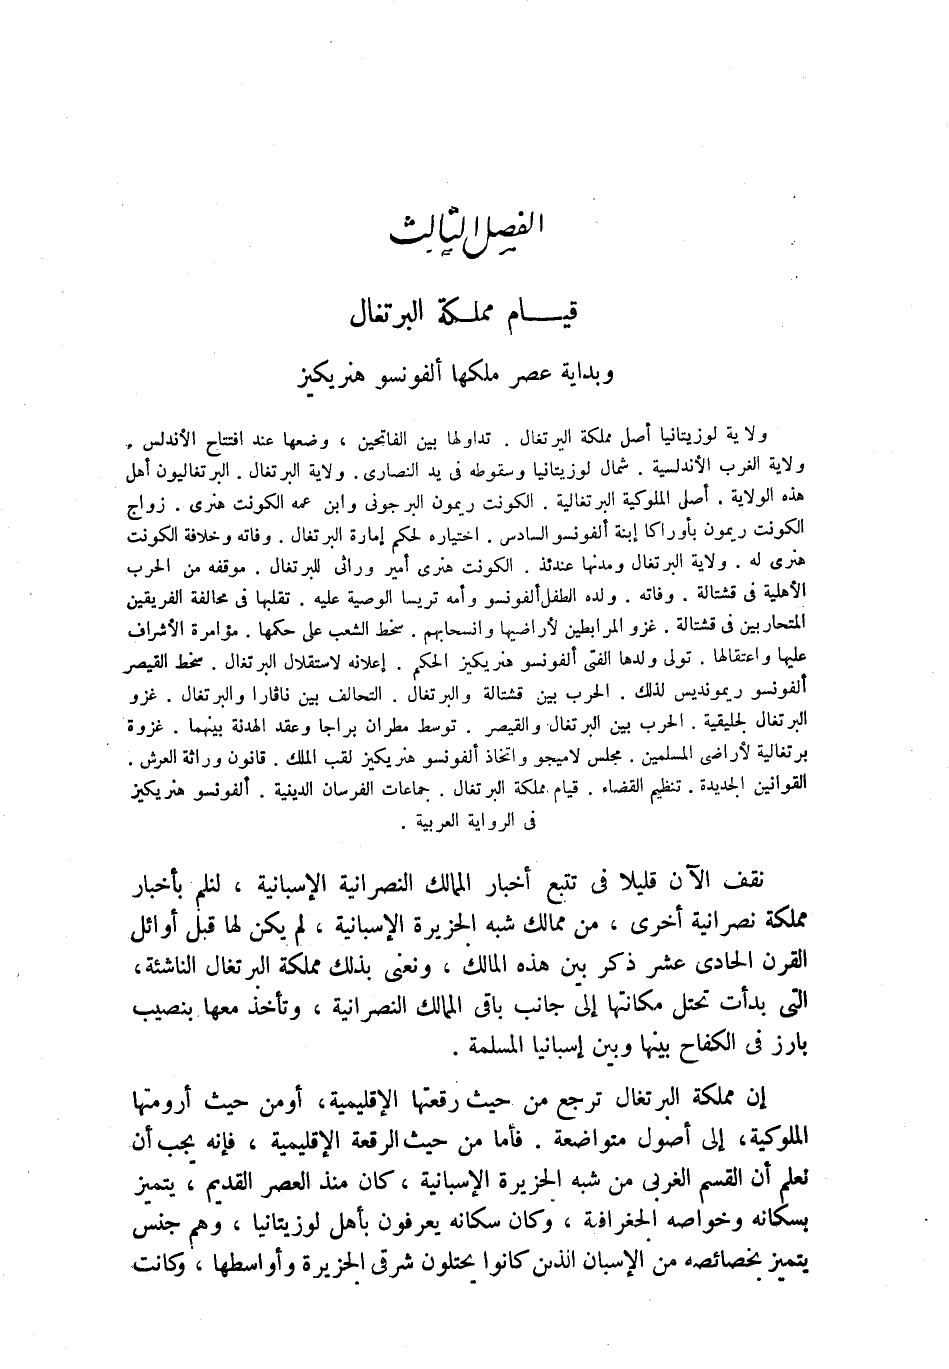 الفصل الثالث
قيــــام مملــكة البرتغال
وبداية عصر ملكها ألفونسو هنريكيز
ولاية لوزيتانيا أصل مملكة البرتغال . تداولها بين الفاتحين ، وضعها عند افتتاح الأندلس .
ولاية الغرب الأندلسية . شمال لوزيتانيا وسقوطه فى يد النصارى . ولاية البرتغال . البرتغاليون أهل
هذه الولاية . أصل الملوكية البرتغالية . الكونت ريمون البرجونى وابن عمه الكونت هنرى . زواج
الكونت ريمون بأوراكا إبنة ألفونسو السادس . اختياره لحكم إمارة البرتغال . وفاته وخلافة الكونت
هنرى له . ولاية البرتغال ومدنها عندئذ . الكونت هنرى أمير وراثى للبرتغال . موقفه من الحرب
الأهلية فى قشتالة . وفاته . ولده الطفل ألفونسو وأمه تريسا الوصية عليه . تقلبها فى محالفة الفريقين
المتحاربين فى قشتالة . غزو المرابطين لأراضيها وانسحابهم . سخط الشعب على حكمها . مؤامرة الأشراف
عليها واعتقالها . تولى ولدها الفتى ألفونسو هنريكيز الحكم . إعلانه لاستقلال البرتغال . سخط القيصر
ألفونسو ريمونديس لذلك . الحرب بين قشتالة والبرتغال . التحالف بين ناڤارا والبرتغال . غزو
البرتغال لجليقية . الحرب بين البرتغال والقيصر . توسط مطران براجا وعقد الهدنة بينهما . غزوة
برتغالية لأراضى المسلمين . مجلس لاميجو واتخاذ ألفونسو هنريكيز لقب الملك . قانون وراثة العرش .
القوانين الجديدة . تنظيم القضاء . قيام مملكة البرتغال . جماعات الفرسان الدينية . ألفونسو هنريكيز
فى الرواية العربية .
نقف الآن قليلا فى تتبع أخبار الممالك النصرانية الإسبانية ، لنلم بأخبار
مملكة نصرانية أخرى ، من ممالك شبه الجزيرة الإسبانية ، لم يكن لها قبل أوائل
القرن الحادى عشر ذكر بين هذه الممالك ، ونعنى بذلك مملكة البرتغال الناشئة،
التى بدأت تحتل مكانتها إلى جانب باقى الممالك النصرانية ، وتأخذ معها بنصيب
بارز فى الكفاح بينها وبين إسبانيا المسلمة .
إن مملكة البرتغال ترجع من حيث رقعتها الإقليمية، أومن حيث أرومتها
الملوكية، إلى أصول متواضعة . فأما من حيث الرقعة الإقليمية ، فإنه يجب أن
نعلم أن القسم الغربى من شبه الجزيرة الإسبانية ، كان منذ العصر القديم ، يتميز
بسكانه وخواصه الجغرافية ، وكان سكانه يعرفون بأهل لوزيتانيا ، وهم جنس
يتميز بخصائصه من الإسبان الذين كانوا يحتلون شرقى الجزيرة وأواسطها ، وكانت